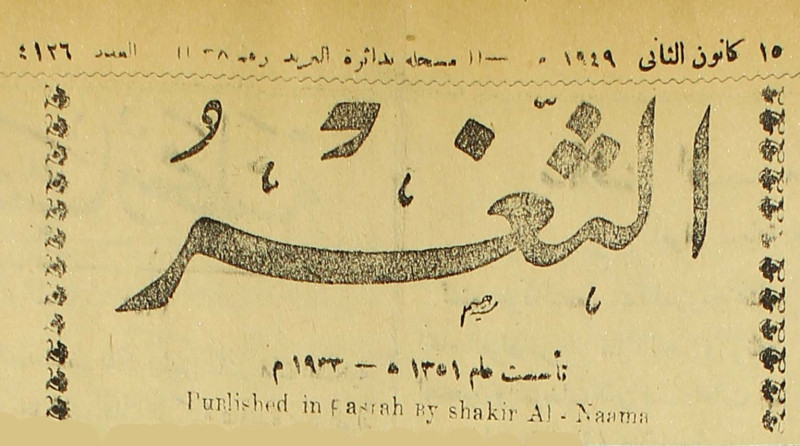 ١٥ كانون الثاني ١٩٤٩ مسجله بدائرة البريد العدد ٤١٢٦
الثغر
تأسست عام ١٣٥١ ه — ١٩٣٣ م
Published in Basrah By shakir Al - Naama